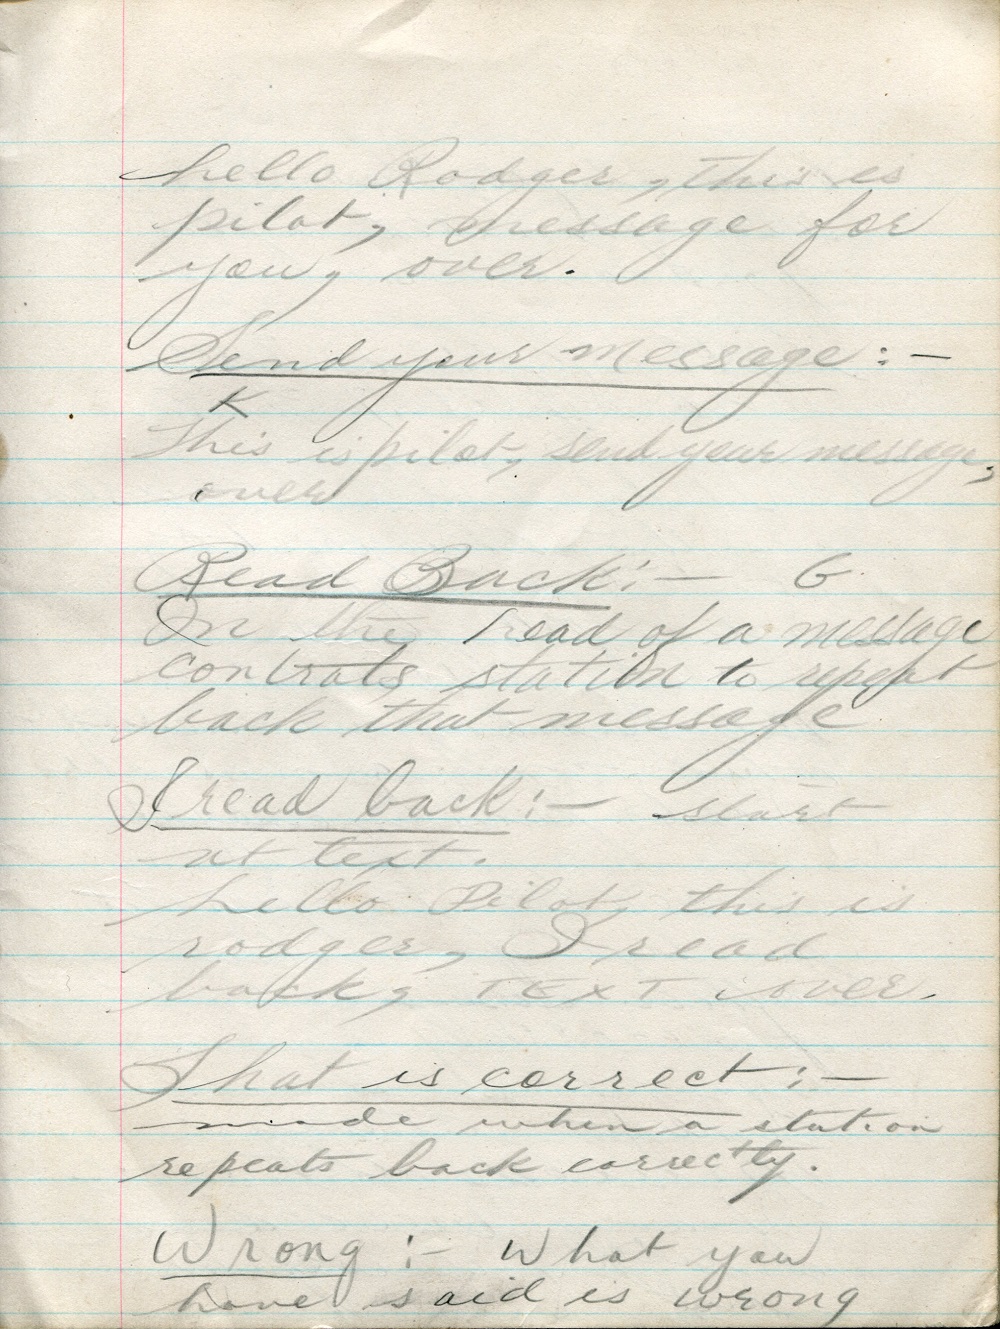 hello Rodger, this is
pilot, message for
you, over.
Send your message :-
K
This is pilot, send your message,
over
Read Back :- G
In the head of a message
contrats station to repeat
back that message
I read back :- start
at text.
hello Pilot, this is
rodger, I read
back, TEXT over.
That is correct :-
made when a station
repeats back correctly.
Wrong :- What you
have said is wrong